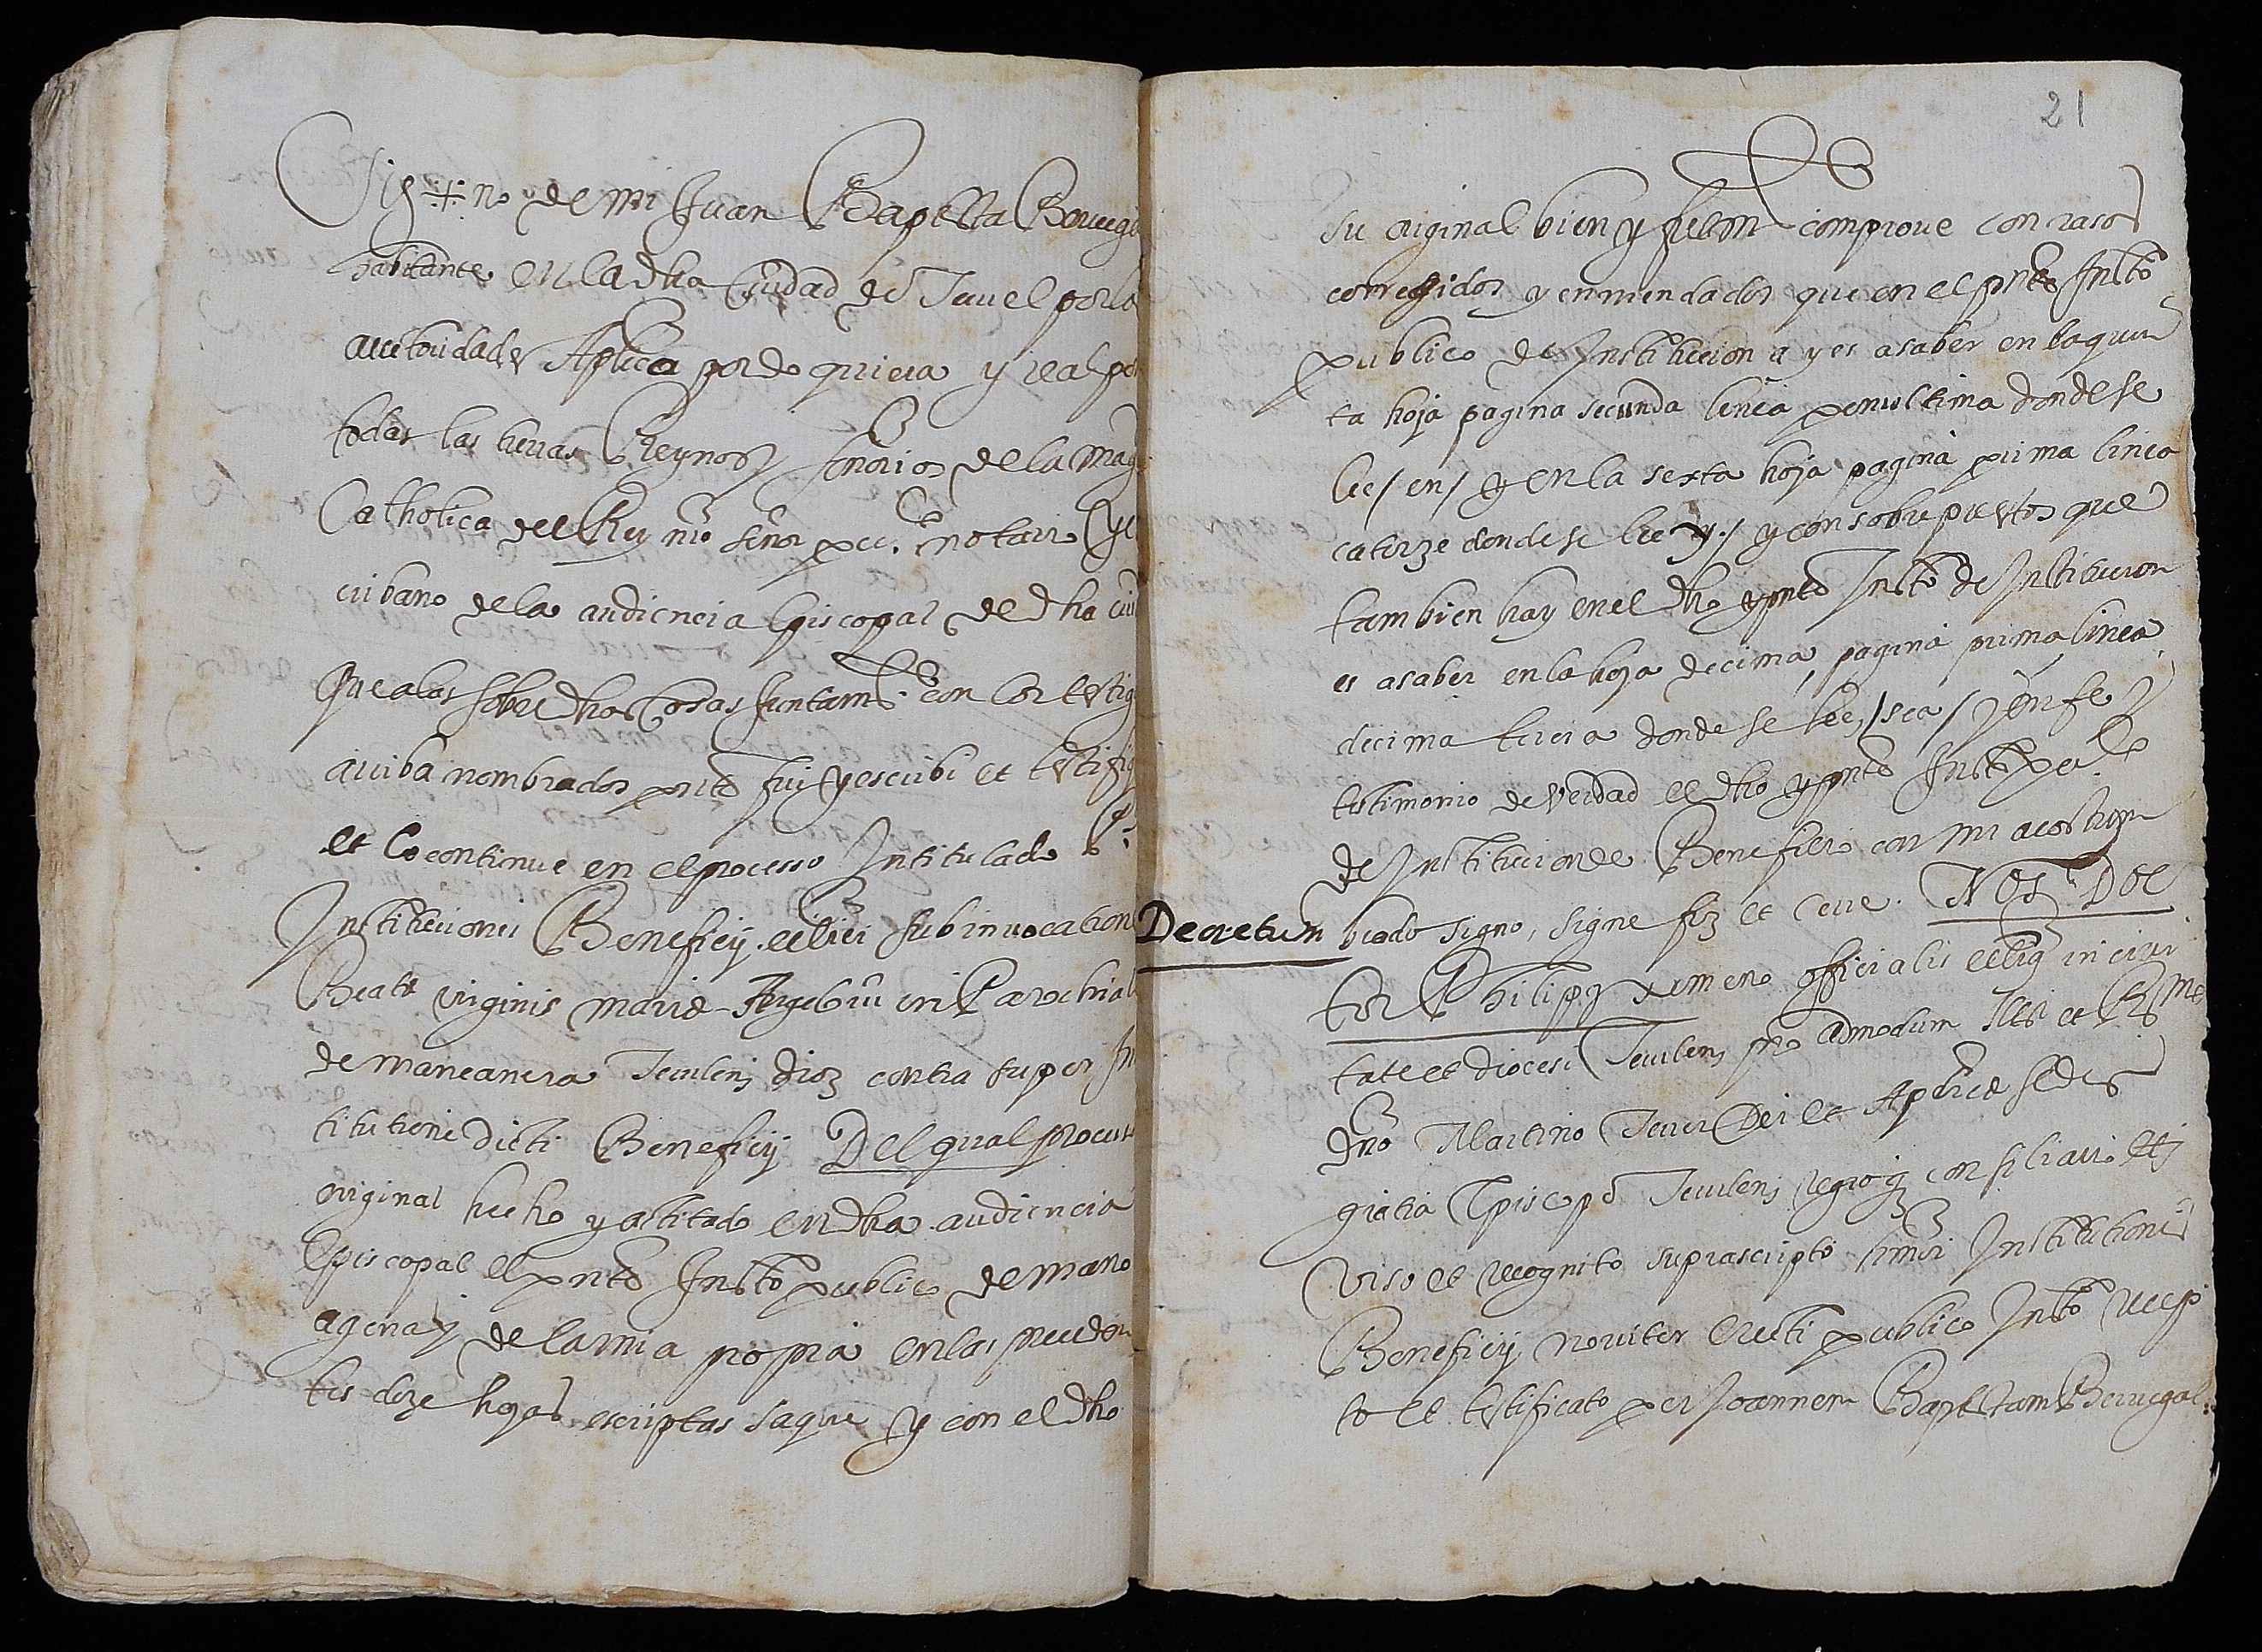 Sig+no de mi Juan Baptista Berueg
habitante en la dha Ciudad de Teruel por la
auctoridades Aplica por do quiera y real por
todas las tierras Reynos y señorios de la mag
Catholica del Rey nro señor pu.co notario y es
criba no de la audiencia Episcopal de dha ciu
Que a las sobredhas cosas juntamte con los testig
arriba nombrados pnte fui y escribi et testifiq
et lo continue en el processo Intitulado
Institucionis Beneficij ecclici sub inuocatione
Beate virginis marie Angeloru in Parochiali
de mancanera Terulens dioz contra super Ins
titutione dicti Beneficij Del qual process
original hecho y actitado en dha audiencia
Episcopal el pnte Insto publico de mano
agena y de la mia propia en las preceden
tes doze hojas escriptas saque y con el dho
21
su original bien y fielmte comprove con rasos
corregidos y enmendados que en el pnte Insto
publico de Institucion a y es a saber en la quin
ta hoja pagina secunda linea penultima donde se
lee / en / y en la sexta hoja pagina prima linea
catorze donde se lee y / y con sobrepuestos que
tambien hay en el dho y pnte Insto de Institucion
es a saber en la hoja decima pagina prima linea
decima tercia donde se lee / sea / y en fe y
testimonio de verdad el dho y pnte Insto pu.co
de Institucion de Beneficio con mi acostum
Decretum brado signo, signe fiz et cerre. Nos Doc
tor Philippus ximeno officialis ecclicus in civi
tate et diocesi Terulens pro admodum Illri et Rmo
Dno Martino Terrer Dei et Aplice sedis
gratia Episcopo Terulens regioq consiliario etc
Viso et recognito suprascripto simili Institutionis
Beneficij noviter erecti publico Insto recep
to et testificato per Joannem Baptistam Beruegal